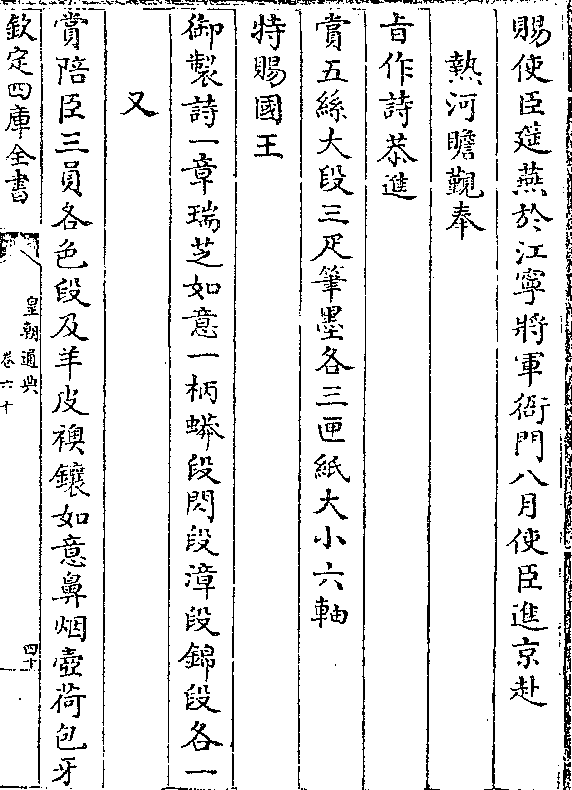 賜使臣筵燕於江寧將軍衙門八月使臣進京赴
熱河瞻覲奉
旨作詩恭進
賞五絲大段三疋筆墨各三匣紙大小六軸
特賜國王
御製詩一章瑞芝如意一柄蟒段閃段漳段錦段各一
又
賞陪臣三員各色段及羊皮襖鑲如意鼻烟壺荷包牙
欽定四庫全書
皇朝通典
卷六十
四十